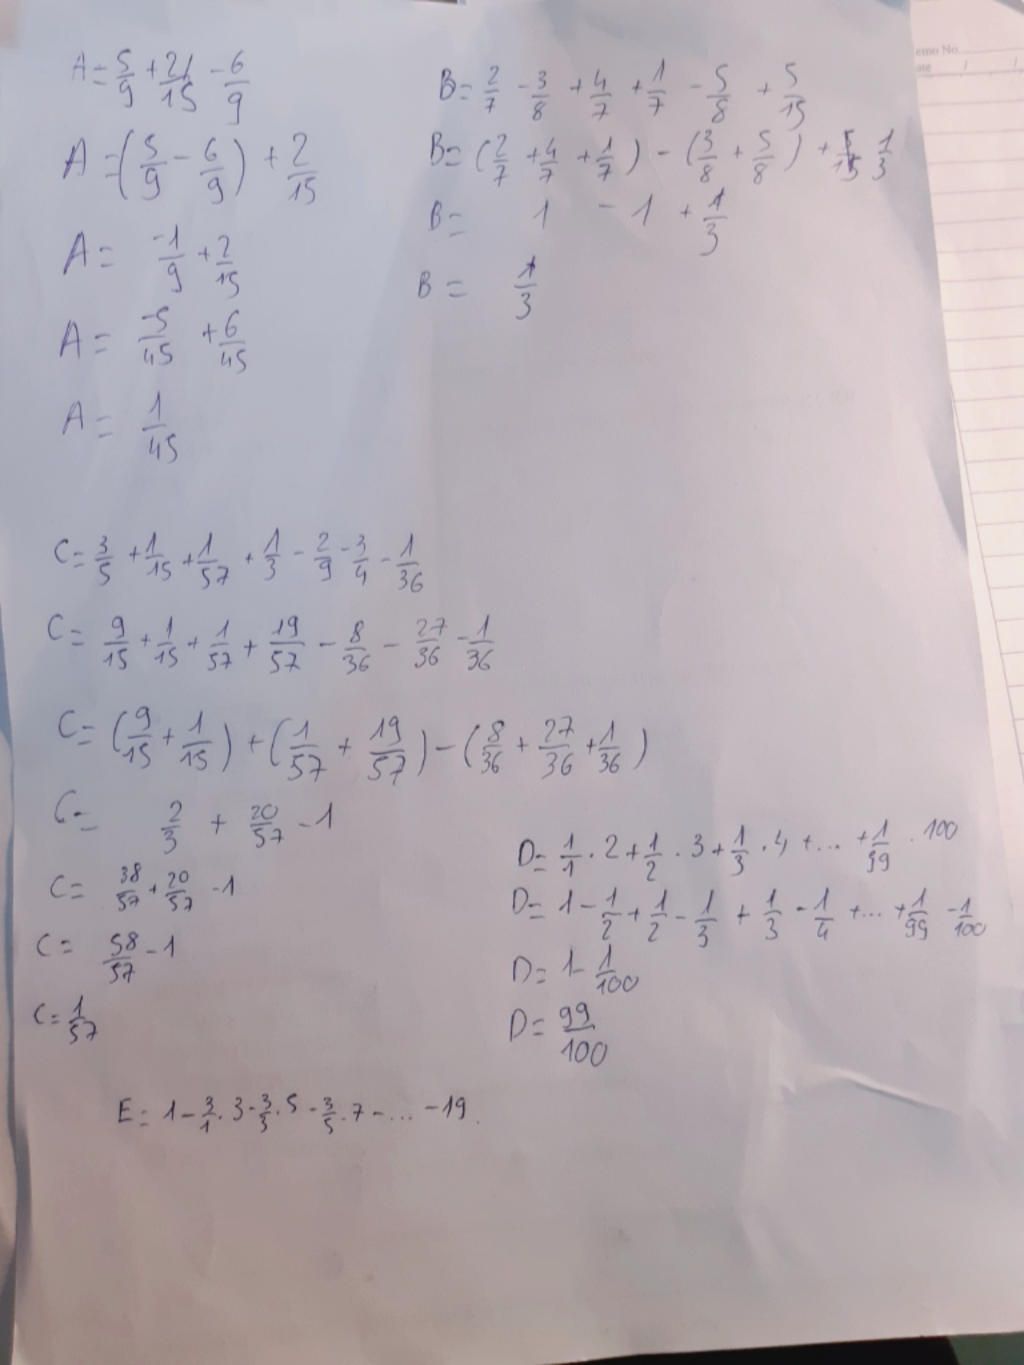 A = 5/9 + 2/15 - 6/9
A = (5/9 - 6/9) + 2/15
A = -1/9 + 2/15
A = -5/45 + 6/45
A = 1/45
B = 2/7 - 3/8 + 4/7 + 1/7 - 5/8 + 5/15
B = (2/7 + 4/7 + 1/7) - (3/8 + 5/8) + 1/3
B = 1 - 1 + 1/3
B = 1/3
C = 3/5 + 1/15 + 1/57 + 1/3 - 2/9 - 3/4 - 1/36
C = 9/15 + 1/15 + 1/57 + 19/57 - 8/36 - 27/36 - 1/36
C = (9/15 + 1/15) + (1/57 + 19/57) - (8/36 + 27/36 + 1/36)
C = 2/3 + 20/57 - 1
C = 38/57 + 20/57 - 1
C = 58/57 - 1
C = 1/57
D = 1/1 . 2 + 1/2 . 3 + 1/3 . 4 + ... + 1/99 . 100
D = 1 - 1/2 + 1/2 - 1/3 + 1/3 - 1/4 + ... + 1/99 - 1/100
D = 1 - 1/100
D = 99/100
E = 1 - 3/1 . 3 - 3/3 . 5 - 3/5 . 7 - ... - 19.
emo No.
ate / /